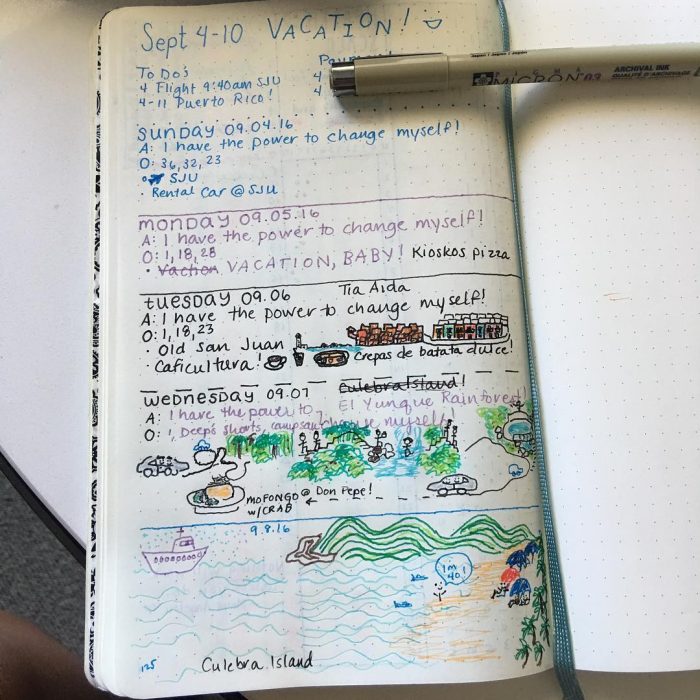 Sept 4-10 VACATION!
To Do's
4 Flight 9:40am SJU 4
4-11 Puerto Rico! 4
PIGMA MICRON 03
ARCHIVAL INK
QUALITÉ D'ARCHIVAGE
Sunday 09.04.16
A: I have the power to change myself!
O: 36, 32, 23
SJU
• Rental Car @ SJU
monday 09.05.16
A: I have the power to change myself!
O: 1, 18, 28
• VACATION, BABY! Kioskos pizza
tuesday 09.06 Tia Aida
A: I have the power to change myself!
O: 1, 18, 23
• Old San Juan
• Caficultura! Crepas de batata dulce!
wednesday 09.07 Culebra Island!
A: I have the power to El Yunque Rainforest!
O: 1, Deep's shorts, change myself!
MOFONGO @ Don Pepe!
w/CRAB
9.8.16
I'm
40!
125
Culebra Island